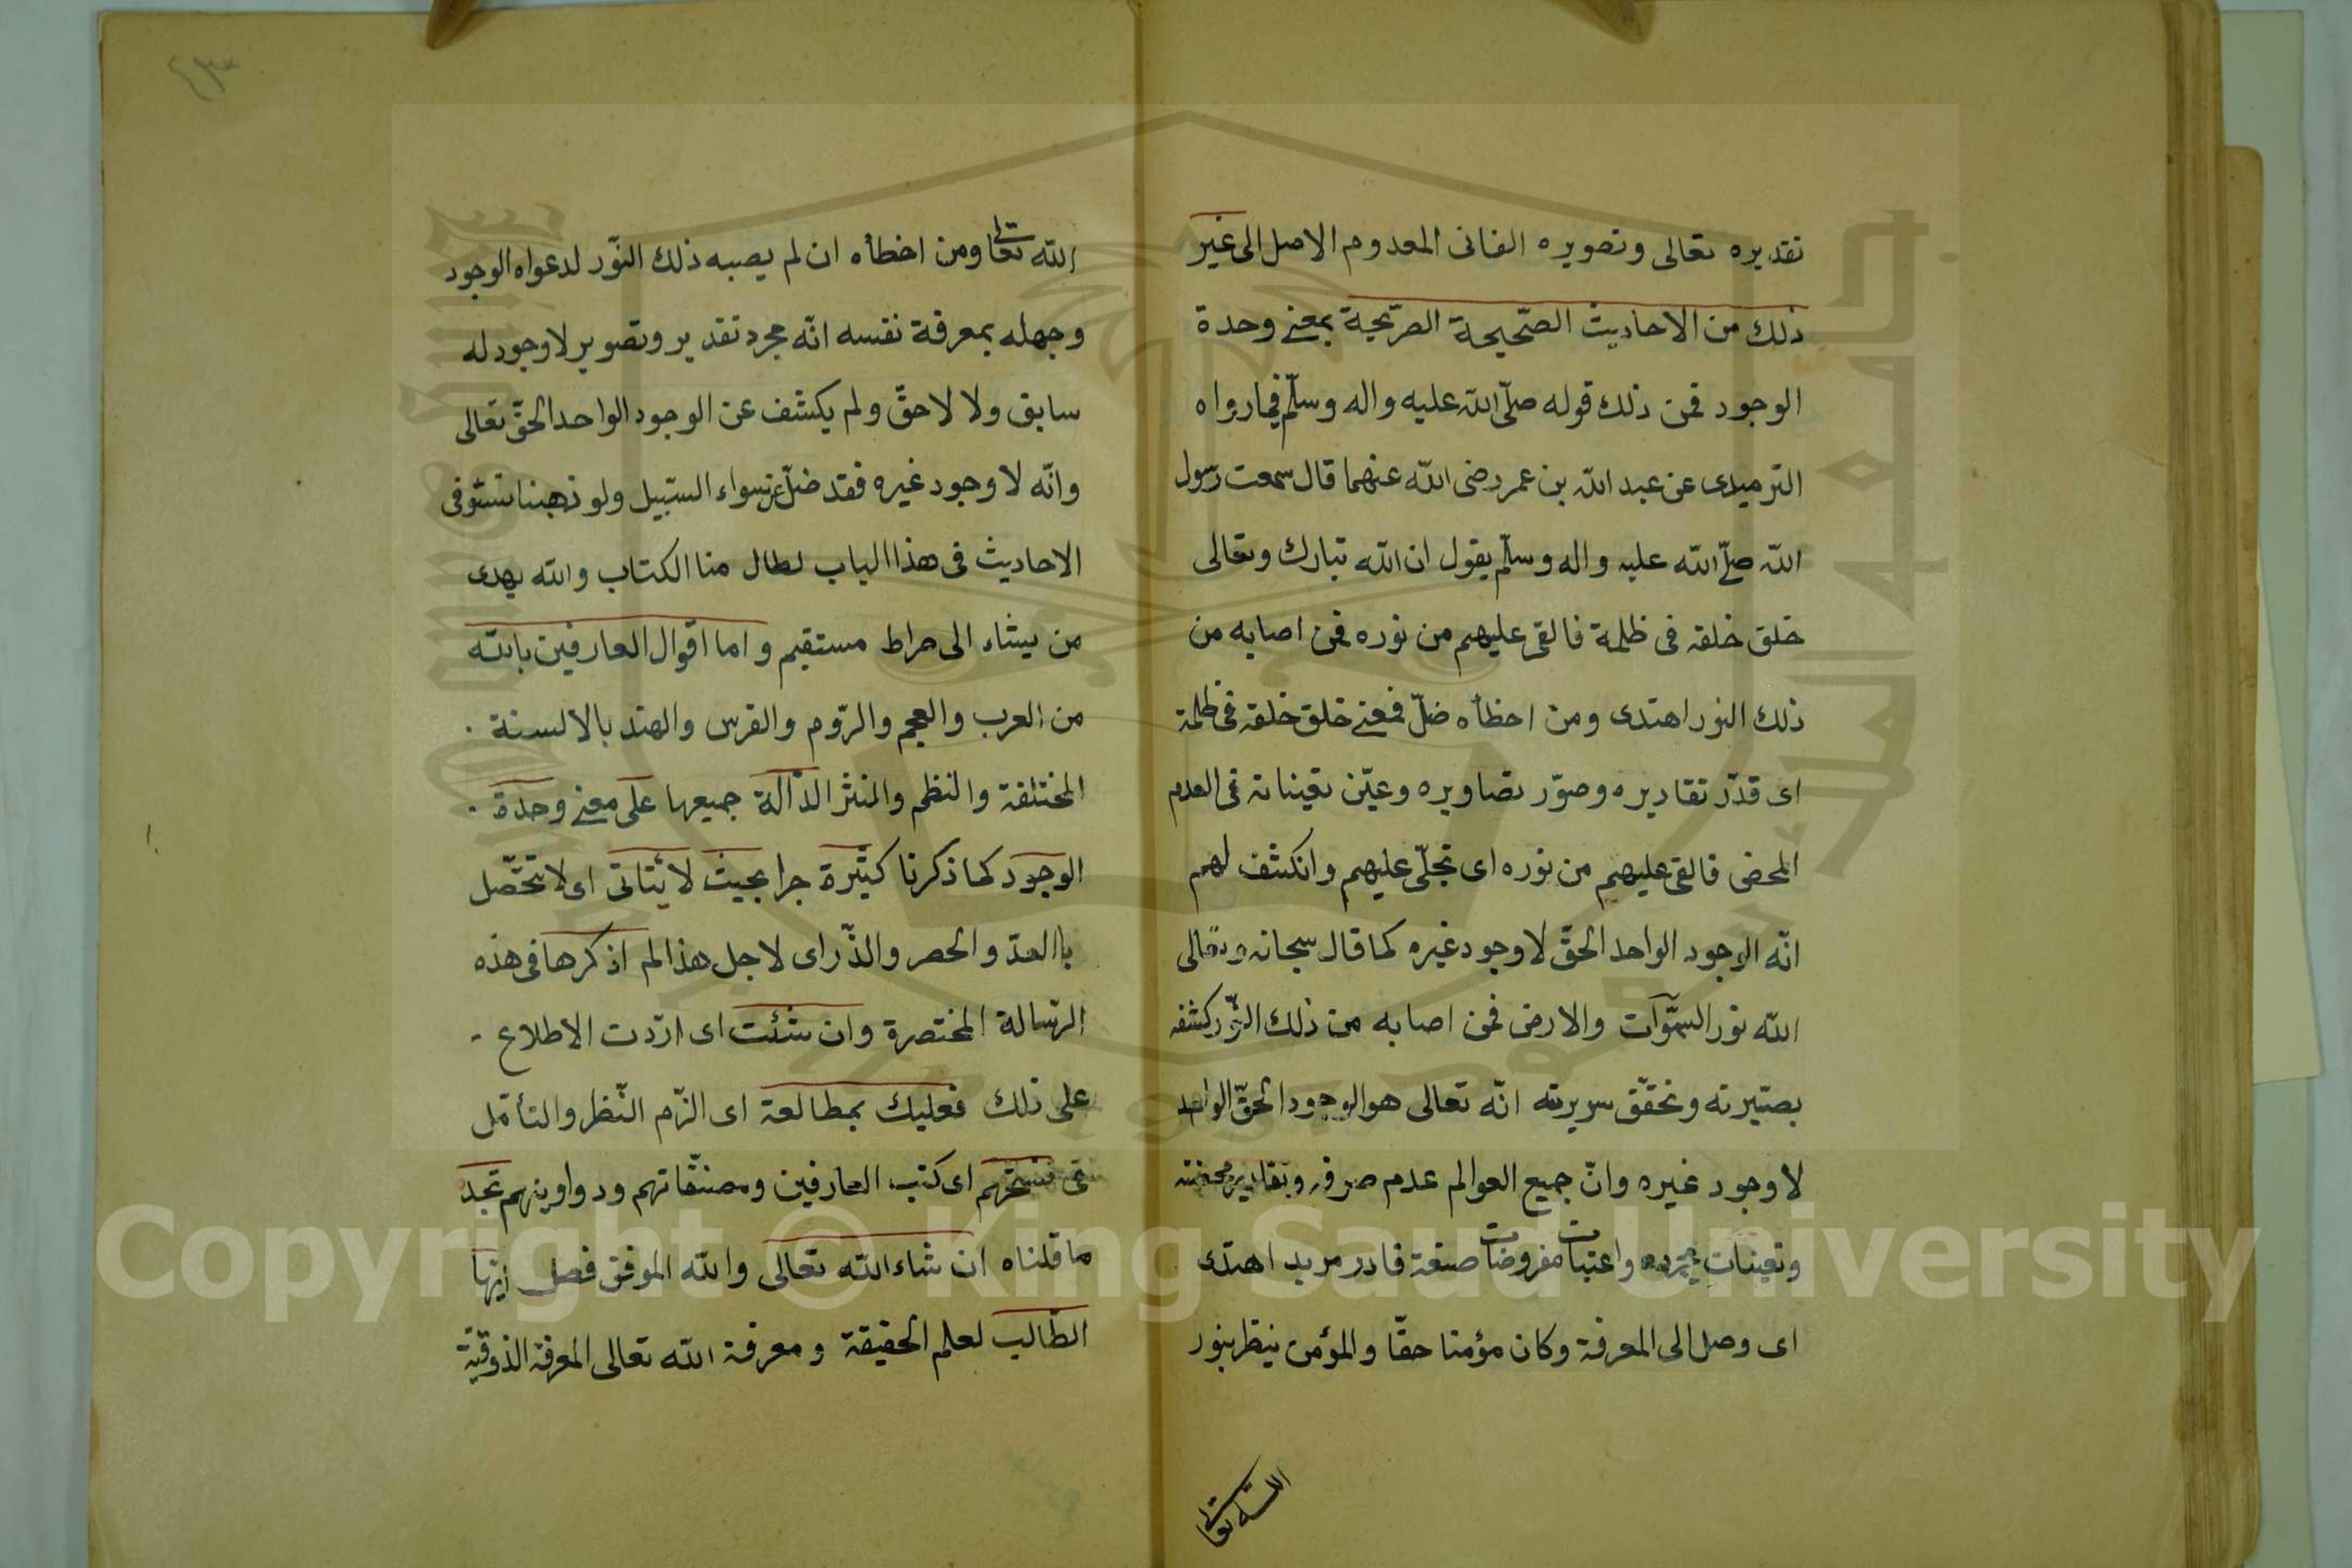 تقديره تعالى وتصويره الفانى المعدوم الاصل الى غير
ذلك من الاحاديث الصّحيحة الصّريحية بمعنى وحدة
الوجود فمن ذلك قوله صلّى الله عليه واله وسلّم فيما رواه
الترميدى عن عبد الله بن عمر رضى الله عنهما قال سمعت رسول
الله صلّى الله عليه واله وسلّم يقول ان الله تبارك وتعالى
خلق خلقه فى ظلمة فالقى عليهم من نوره فمن اصابه من
ذلك النور اهتدى ومن اخطأه ضلّ فمعنى خلق خلقه فى ظلمة
اى قدّر تقاديره وصوّر تصاويره وعيّن تعيناته فى العدم
المحض فالقى عليهم من نوره اى تجلّى عليهم وانكشف لهم
انّه الوجود الواحد الحقّ لا وجود غيره كما قال سبحانه وتعالى
الله نور السّموات والارض فمن اصابه من ذلك النّور كشفه
بصيّرته وتحقّق سريرته انّه تعالى هو الوجود الحقّ الواحد
لا وجود غيره وانّ جميع العوالم عدم صرفه وتقادير محضته
وتعينات مجرده واعتبات مفروضات صنعة قادر مريد اهتدى
اى وصل الى المعرفة وكان مؤمنا حقّا والمؤمن ينظر بنور
الله تعالى
الله تعالى ومن اخطأه ان لم يصبه ذلك النّور لدعواه الوجود
وجهله بمعرفة نفسه انّه مجرد تقدير وتصوير لا وجود له
سابق ولا لاحقّ ولم يكشف عن الوجود الواحد الحقّ تعالى
وانّه لا وجود غيره فقد ضلّ عن سواء السّبيل ولو ذهبنا نستوفى
الاحاديث فى هذا الباب لطال منا الكتاب والله يهدى
من يشاء الى صراط مستقيم واما اقوال العارفين بالله
من العرب والعجم والرّوم والفرس والهند بالالسنة
المختلفة والنظم والنثر الدّالة جميعها على معنى وحدة
الوجود كما ذكرنا كثيرة جرا بحيث لا يتأتى اى لا تحصّل
باالعدّ والحصر والذّراى لاجل هذا لم اذكرها فى هذه
الرّسالة المختصرة وان شئت اى اردّت الاطلاع
على ذلك فعليك بمطالعة اى الزّم النّظر والتأمّل
فى نسختهم اى كتب العارفين ومصنّفاتهم ودواوينهم تجد
ما قلناه ان شاء الله تعالى والله الموفق فصل ايّها
الطّالب لعلم الحقيقة ومعرفة الله تعالى المعرفة الذوقيّة
Copyright © King Saud University